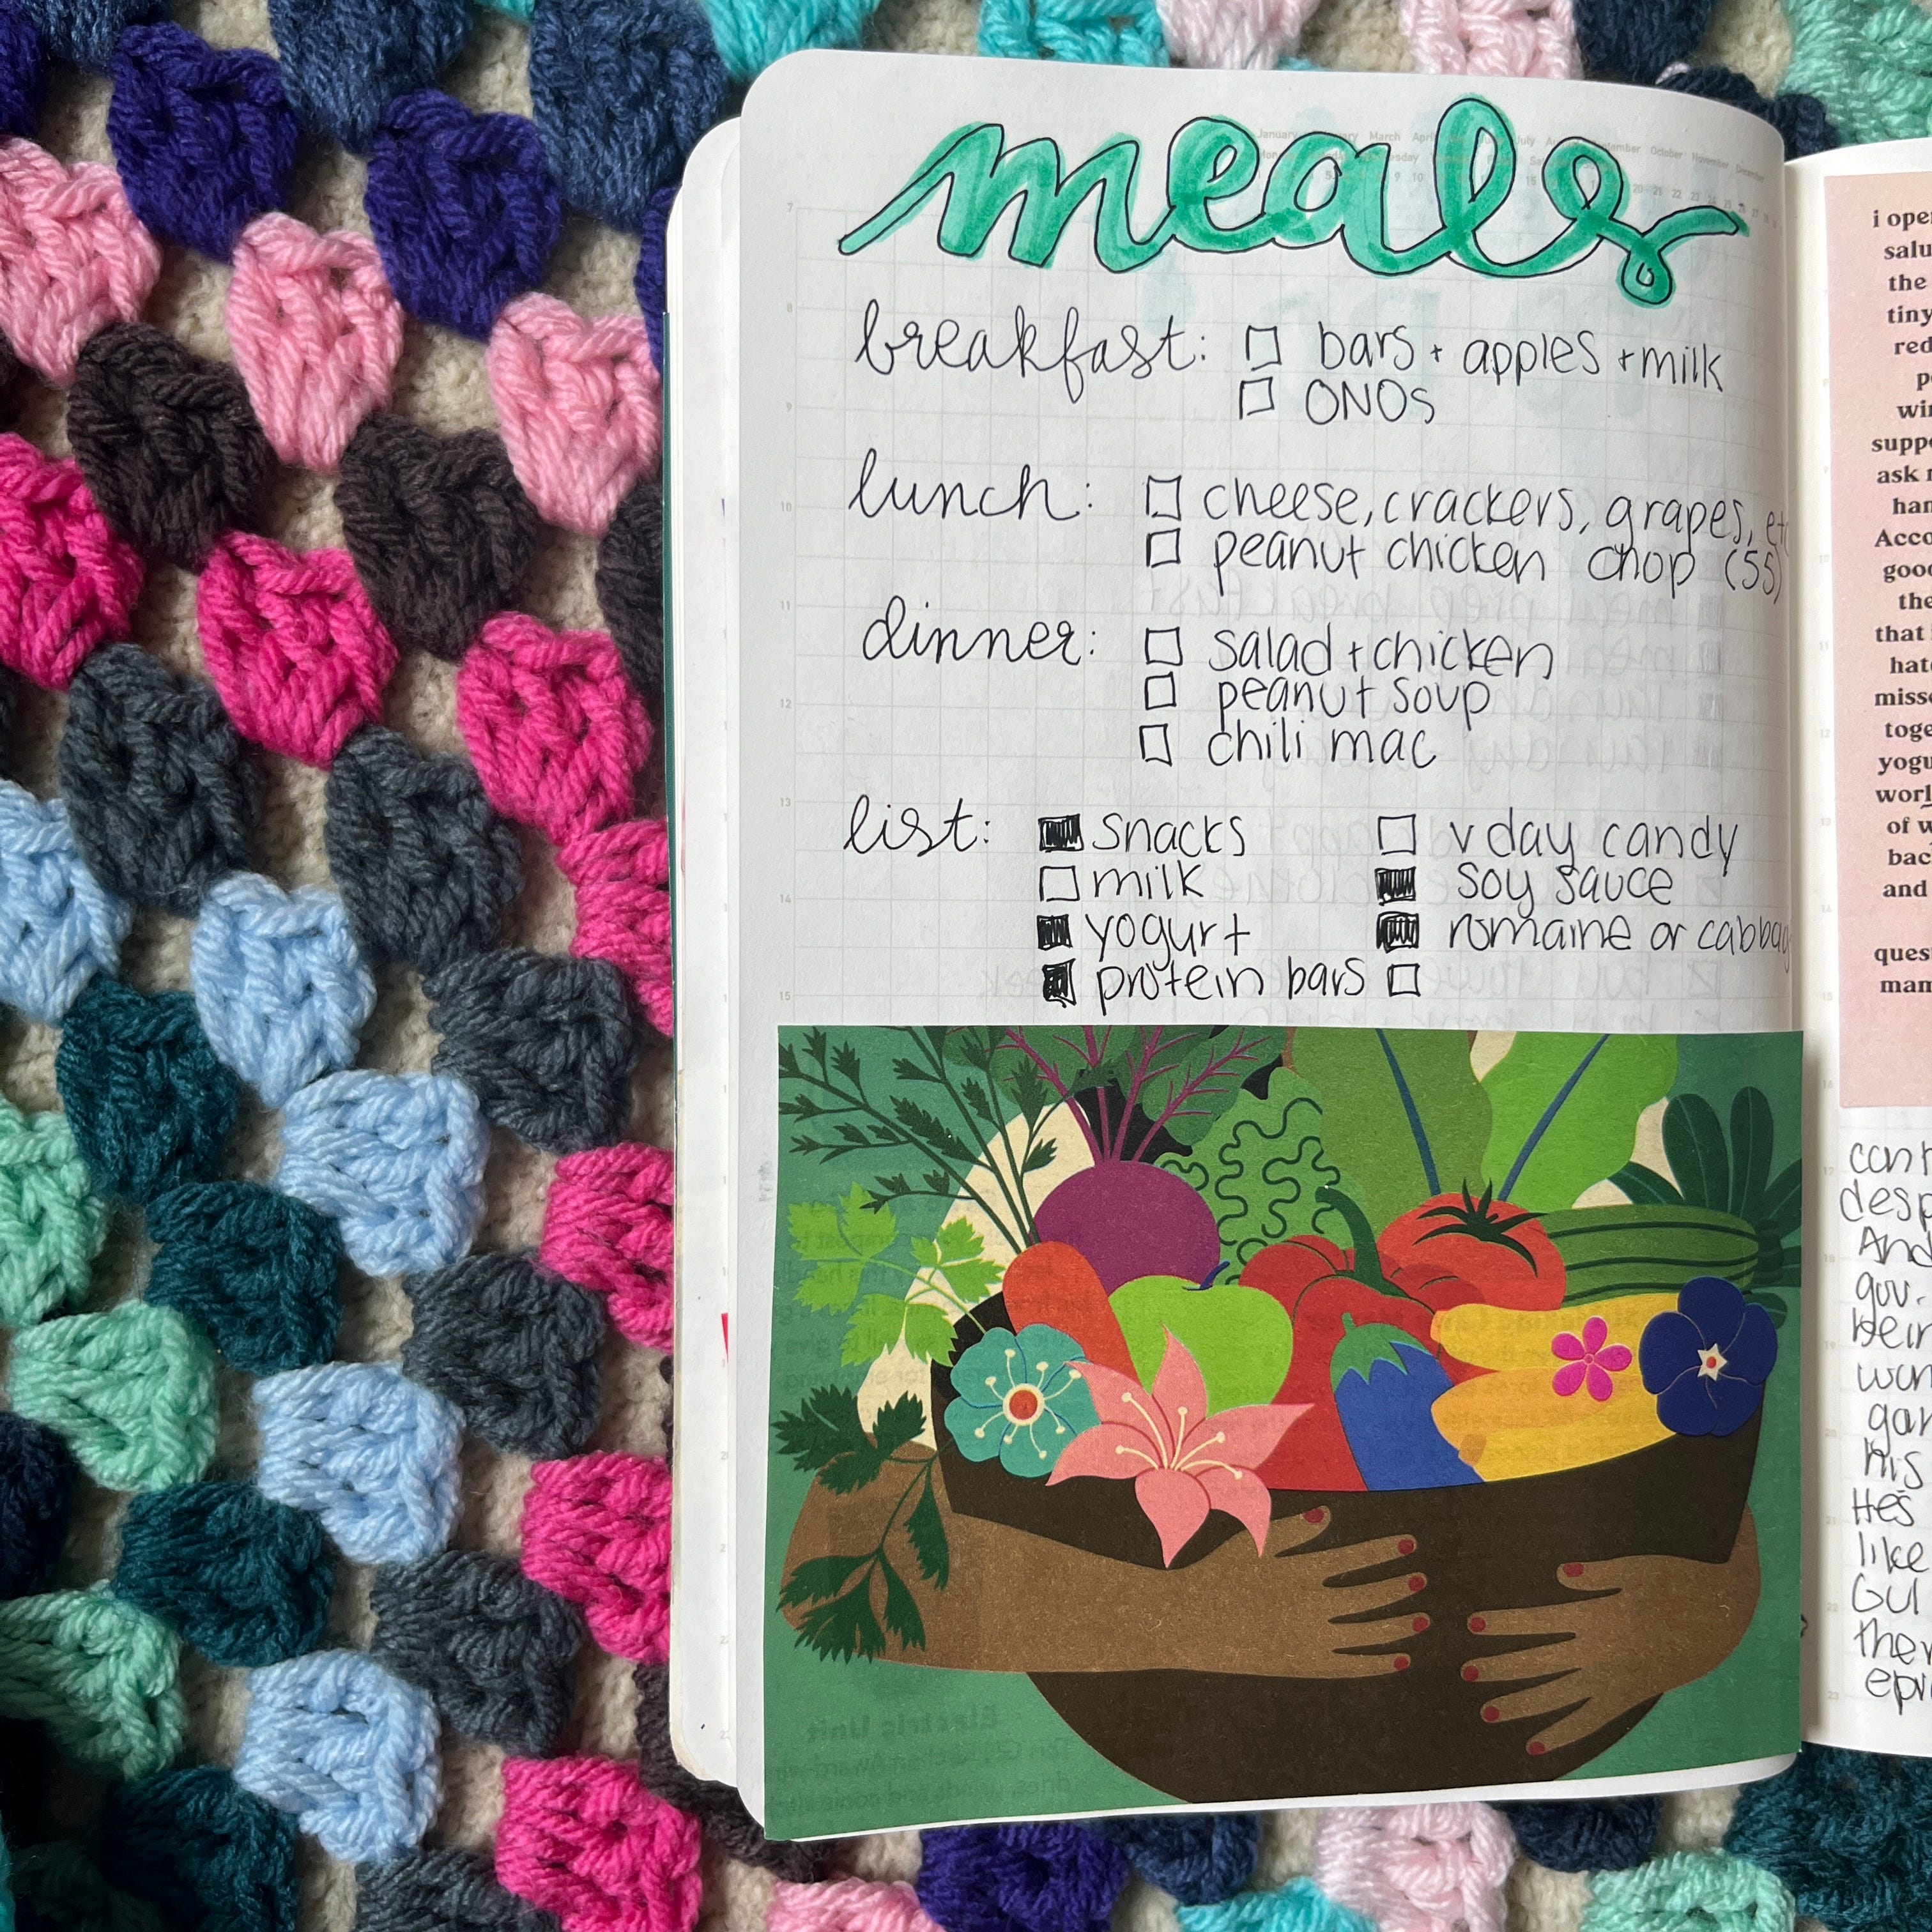 meals
breakfast: □ bars + apples + milk
□ ONOs
lunch: □ cheese, crackers, grapes, etc
□ peanut chicken chop (55)
dinner: □ salad + chicken
□ peanut soup
□ chili mac
list: ■ snacks □ v day candy
□ milk ■ soy sauce
■ yogurt ■ romaine or cabbag
■ protein bars □
7
8
9
10
11
12
13
14
15
i ope
salu
the
tiny
red
p
wi
supp
ask
han
Acco
good
the
that
hat
miss
toge
yogu
worl
of w
bac
and
ques
man
desp
And
guv.
wan
gar
his
He's
like
Gul
ther